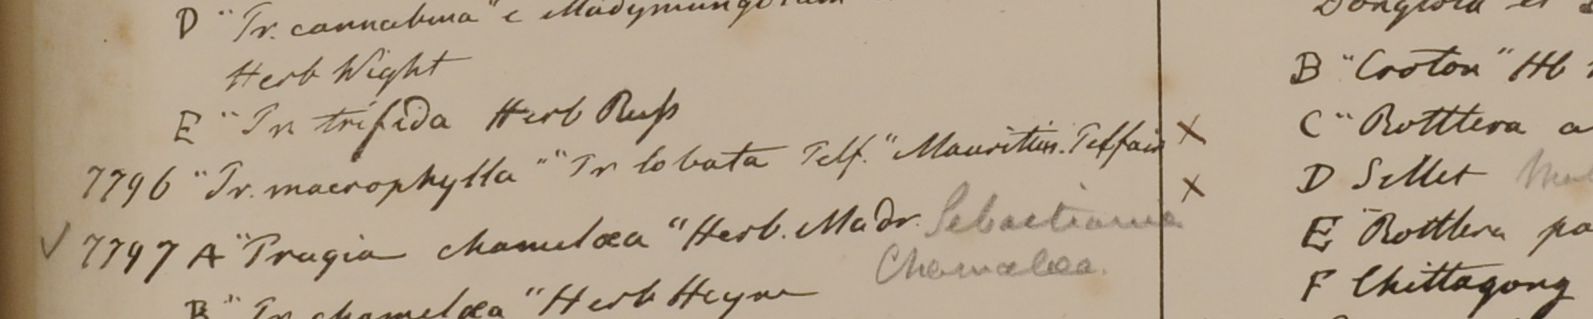 D "Tr. cannabina" e
Herb Wight
E "Tr trifida Herb Russ
7796 "Tr. macrophylla" "Tr lobata Telf." Mauritius. Telfair
7797 A "Tragia chamelæa "Herb. Madr. Sebastiania
Chamælea.
B "Tr. chamelæa "Herb Heyne
B "Croton" Hb
C "Rottlera a
D Sillet
E "Rottlera pa
F Chittagong